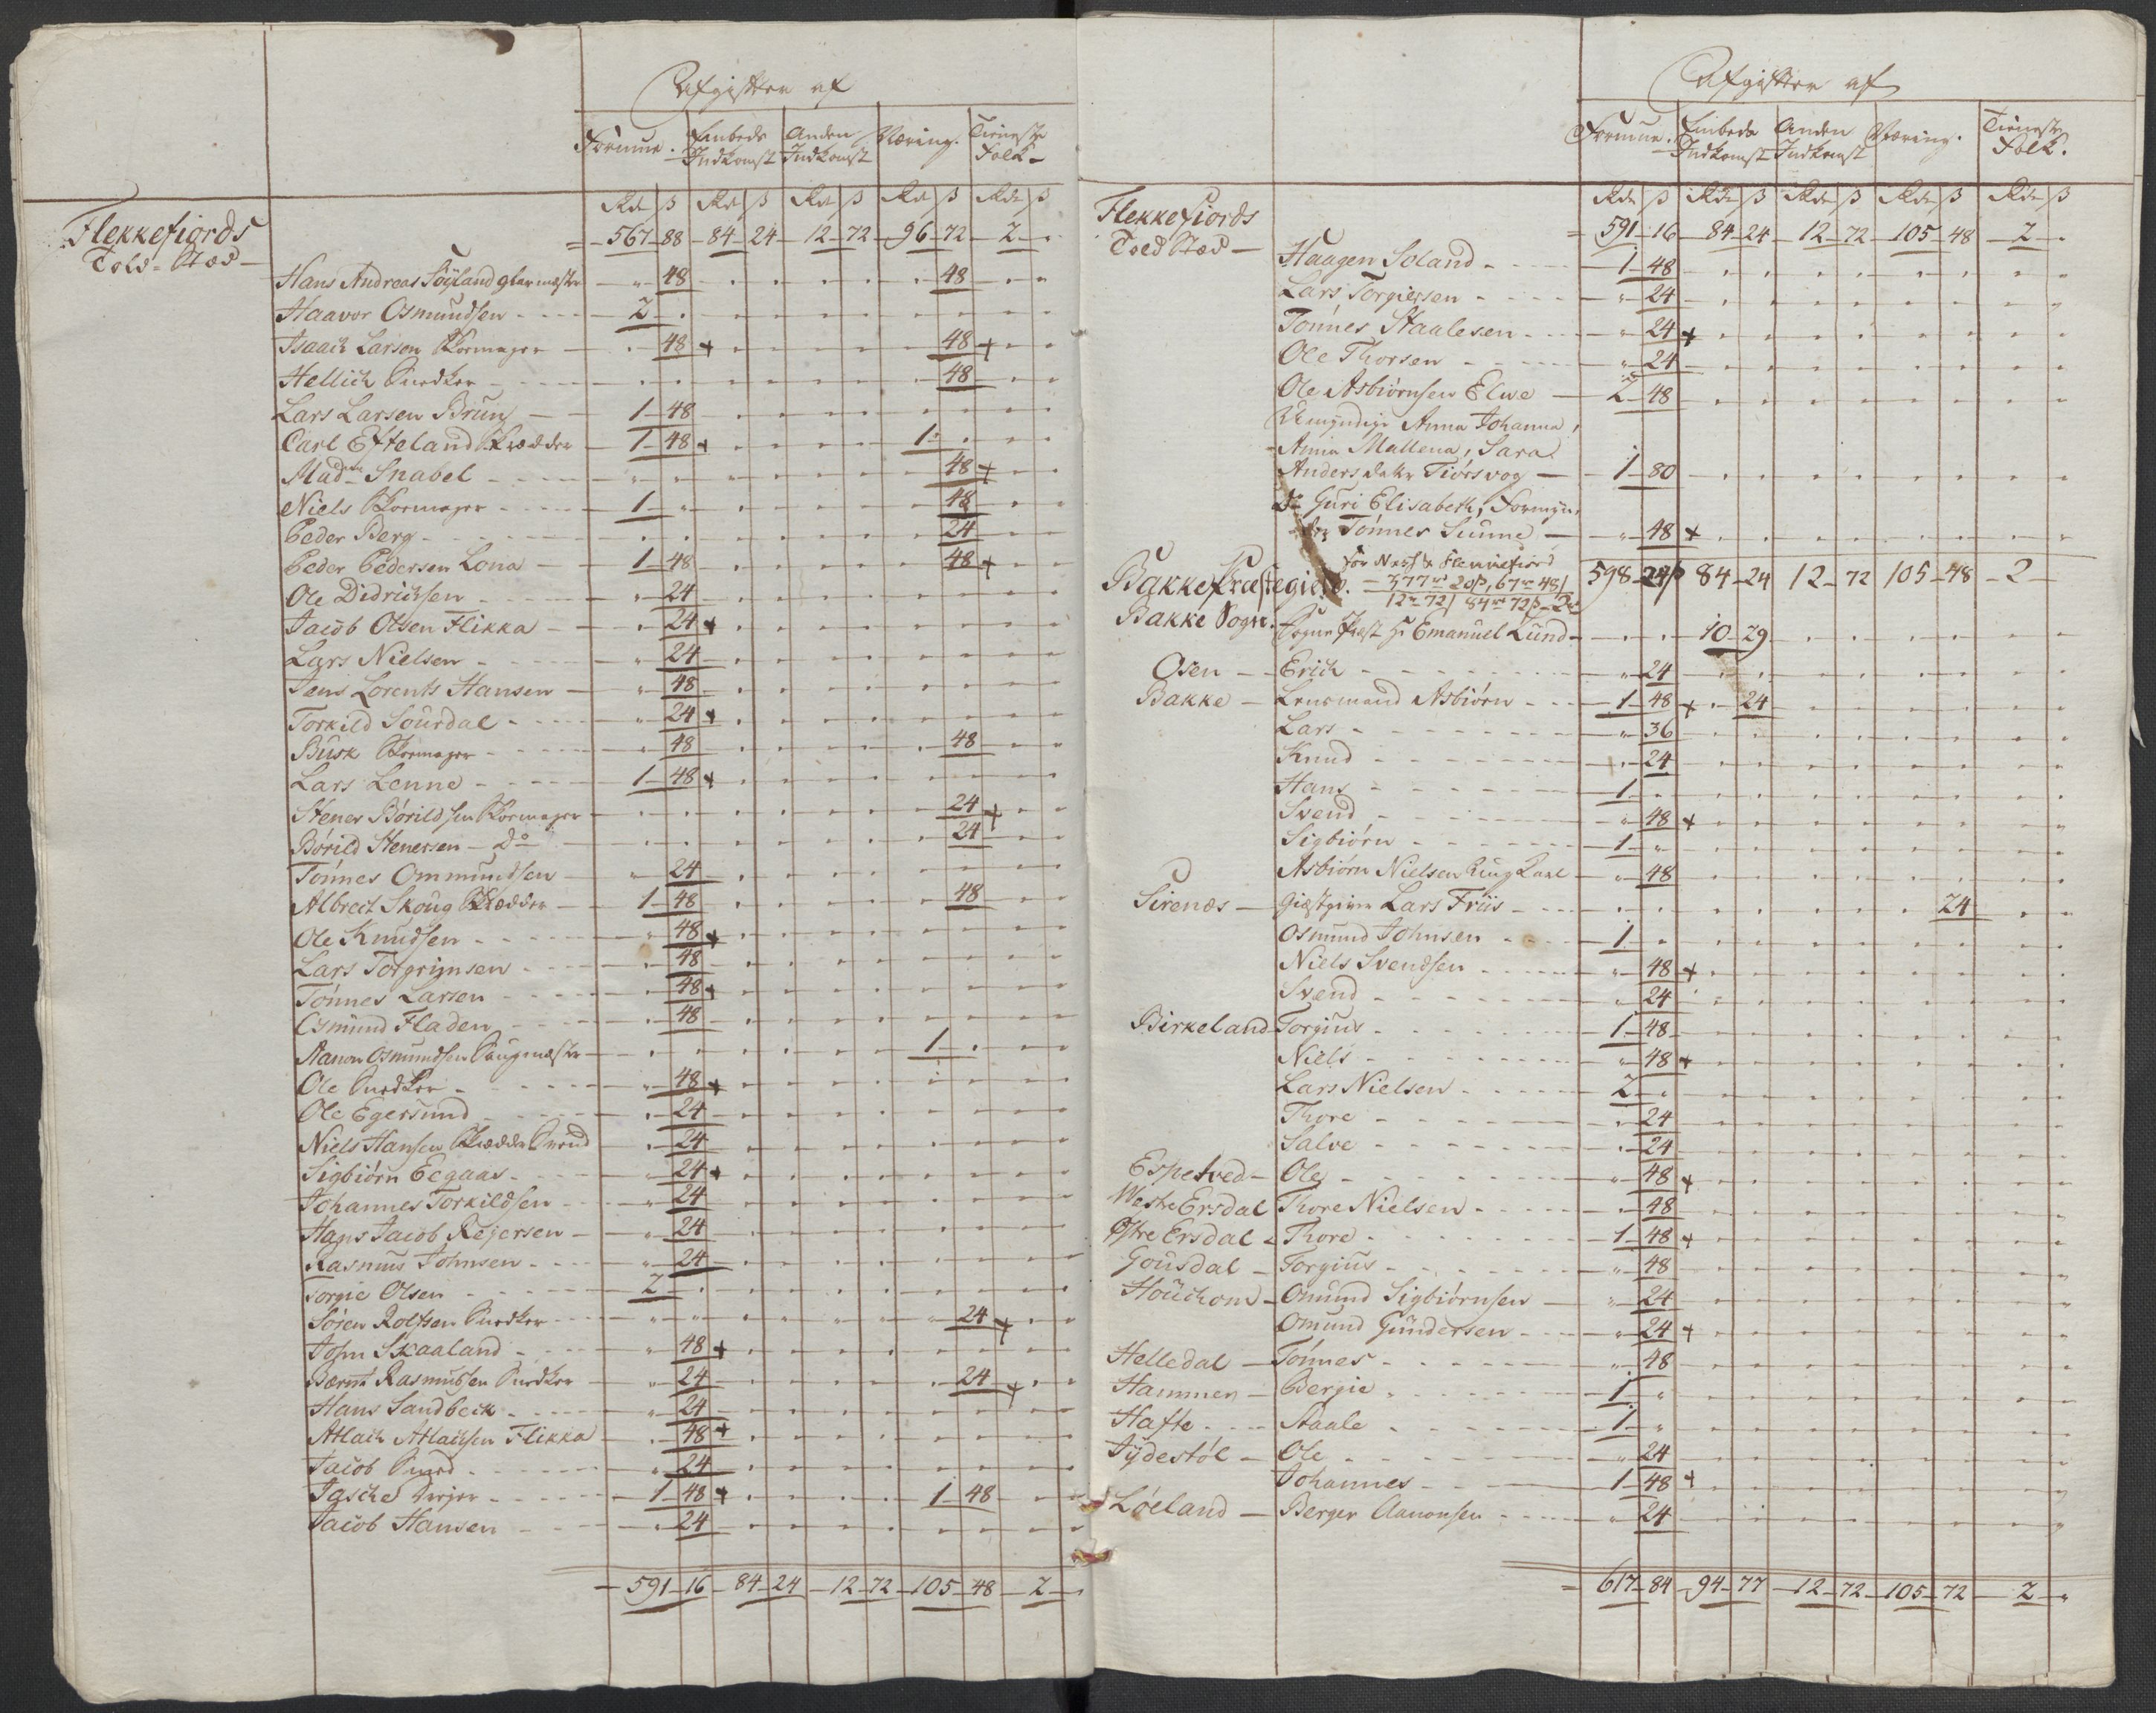 Afgifter af
Formue. Embeds Indkomst Anden Indkomst Næring. Tieneste Folk
Rd ß Rd ß Rd ß Rd ß Rd ß
Flekkefiords Told-Stæd — 567 88 84 24 12 72 96 72 2 "
Hans Andreas Söyland Glarmæster " 48 48
Haavor Osmundsen 2 "
Isaach Larsen Skomager " 48 + 48 +
Hellich Snedker 48
Lars Larsen Brun 1 48
Carl Efteland Skrædder 1 48 + 1 "
Madm Snabel 48 +
Niels Skomager 1 " 48
Peder Berg 24
Peder Pedersen Lona 1 48 48 +
Ole Didrichsen " 24
Jacob Olsen Flikka " 24 +
Lars Nielsen " 24
Jens Lorents Hansen " 48
Torkild Sourdal " 24 +
Busk Skomager " 48 48
Lars Lenne 1 48 +
Stener Börildsen Skomager 24 +
Börild Stenersen Do 24
Tönnes Ommundsen " 24
Albrect Skoug Skrædder 1 48 48
Ole Knudsen " 48 +
Lars Torgrimsen " 48
Tönnes Larsen " 48 +
Osmund Fladen " 48
Aanon Osmundsen 1 "
Ole Snedker " 48 +
Ole Egersund " 24
Niels Hansen Skrædder Svend " 24
Sigbiörn Eegaas " 24 +
Johannes Torkildsen " 24
Hans Jacob Reijersen " 24
Rasmus Johnsen " 24
Torgie Olsen 2 "
Sören Rolfsen Snedker 24 +
John Skaaland " 48 +
Bærnt Rasmusen Snedker " 24 24 +
Hans Sandbeck " 24
Atlach Atlachsen Flikka " 48 +
Jacob Smed " 24
Tasche 1 48 + 1 48
Jacob Hansen " 24
591 16 84 24 12 72 105 48 2 "
Afgifter af
Formue. Embeds Indkomst Anden Indkomst Næring. Tieneste Folk.
Rdr ß Rdr ß Rdr ß Rdr ß Rdr ß
Flekkefiords Told Stæd — 591 16 84 24 12 72 105 48 2 "
Haagen Soland 1 48
Lars Torgiersen " 24
Tönnes Staalesen " 24 +
Ole Thorsen " 24
Ole Asbiörnsen Elve 2 48
Umyndige Anna Johanna,
Anna Mallena, Sara
Anders datr Tiörsvog 1 80
Do Guri Elisabeth, Formyn-
der Tönnes Sunne " 48 +
for Næs & Fleckefiord
Bakke Præstegield. 377rd 20ß, 67rd 48ß 598 24ß 84 24 12 72 105 48 2
12rd 72ß 84rd 72ß 2rd
Bakke Sogn. Sogne Præst Hr Emanuel Lund 10 29
Osen — Erich " 24
Bakke — Lensmand Asbiörn 1 48 + " 24
Lars " 36
Knud " 24
Hans 1 "
Svend " 48 +
Sigbiörn 1 "
Asbiörn Nielsen Ring Karl " 48
Sirenæs — Giæstgiver Lars Friis 24
Osmund Johnsen 1 "
Niels Svendsen " 48 +
Svend " 24
Birkeland Torgius 1 48
Niels " 48 +
Lars Nielsen 2 "
Thore " 24
Salve " 24
Espetved — Ole " 48 +
Westre Ersdal Thore Nielsen " 48
Østre Ersdal — Thore 1 48 +
Gousdal — Torgius " 48
Houchom — Omund Sigbiörnsen " 24
Omund Gundersen " 24 +
Helledal — Tönnes " 48
Hammer — Bergie 1 "
Hafte — Staale 1 "
Tydestöl — Ole " 24
Johannes 1 48 +
Löeland — Berger Aanonsen " 24
617 84 94 77 12 72 105 72 2 "